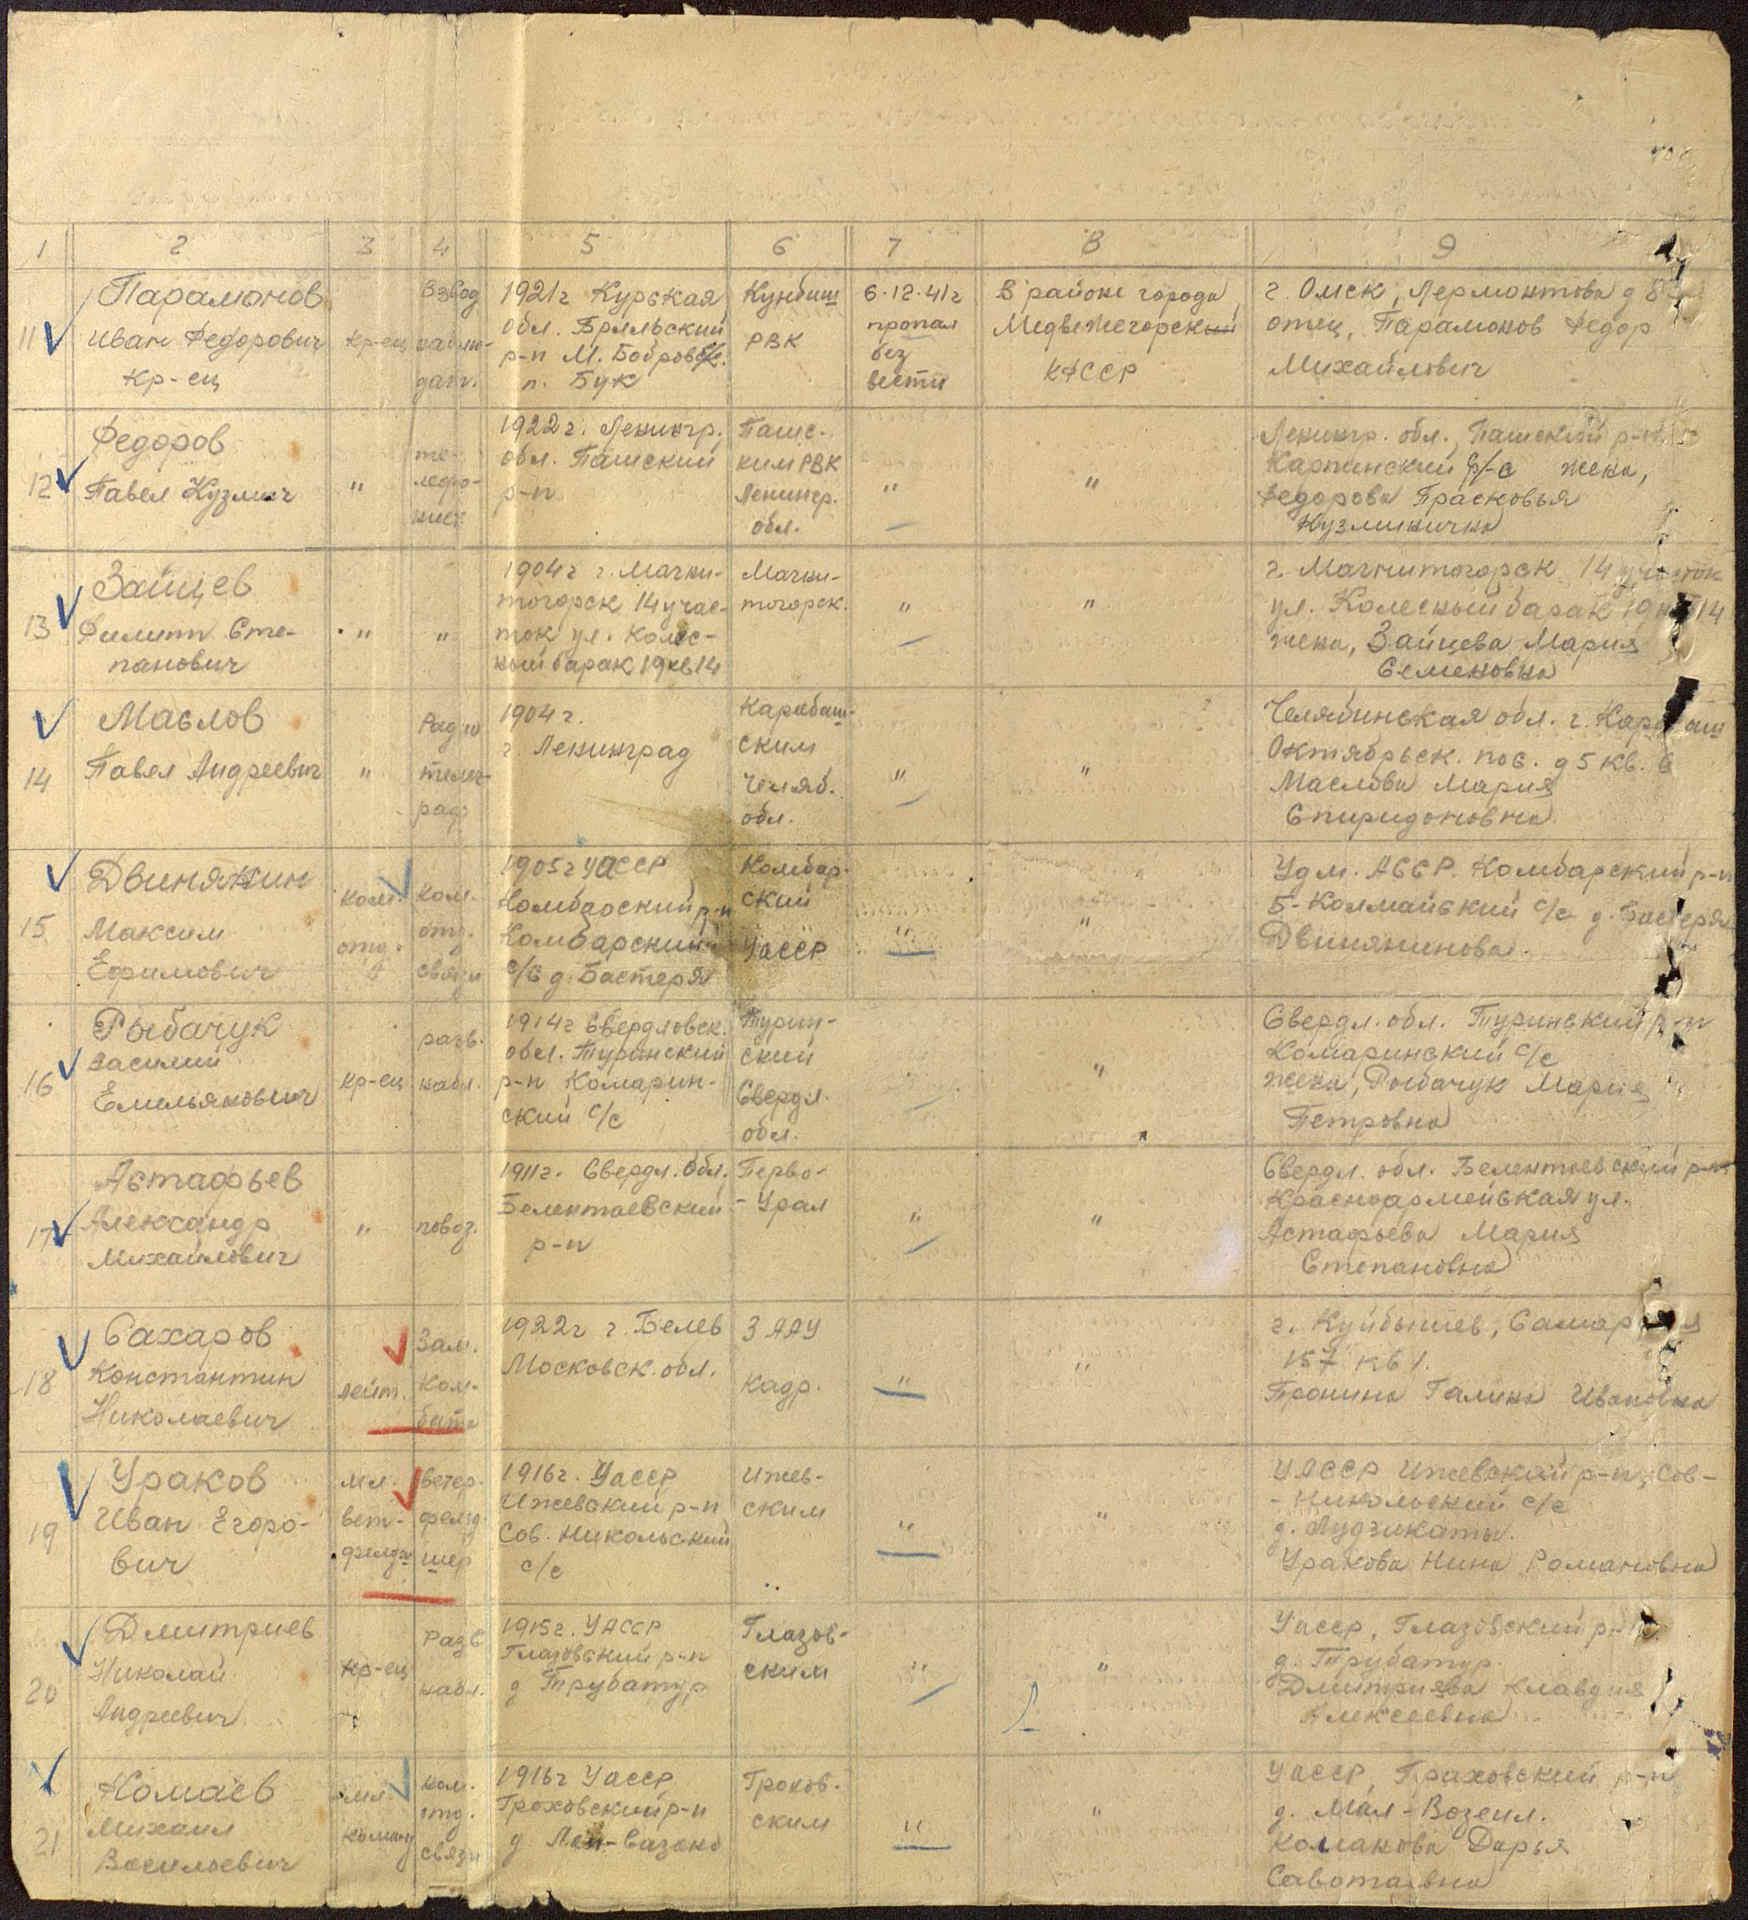 1 2 3 4 5 6 7 8 9
11 Парамонов Иван Федорович Кр-ец
Кр-ец
Взвод
дат.
1921г Курская
обл.
р-н М.
п. Бук
Куйбиш
РВК
6.12.41г
пропал
без
вести
В районе города
Медвежегорск
КФССР
г. Омск, Лермонтова д 8
отец, Парамонов Федор
Михайлович
12 Федоров
Павел Кузмич
"
те-
лефо-
нист
1922г. Ленингр.
обл. Пашский
р-н
Пашс-
ким РВК
Ленингр.
обл.
"
"
Ленингр. обл., Пашский р-н
Карпинский с/с жена,
Федорова Прасковья
Кузминична
13 Зайцев
Филипп Сте-
панович
"
"
1904г г. Магни-
тогорск 14 учас-
ток ул. Колес-
ный барак 19 кв 14
Магни-
тогорск.
"
"
г. Магнитогорск 14 участок
ул. Колесный барак 19 кв 14
жена, Зайцева Мария
Семеновна
14 Маслов
Павел Андреевич
"
Радио
телег-
раф
1904г.
г. Ленинград
Карабаш-
ским
Челяб.
обл.
"
"
Челябинская обл. г. Карабаш
Октябрьск. пос. д 5 кв. 6
Маслова Мария
Спиридоновна
15 Двинянин
Максим
Ефимович
Ком.
отд.
Ком.
отд.
связи
1905г УАССР
Комбарский р-н
Комбарский
с/с д. Бастеря
Комбар-
ский
УАССР
"
"
Удм. АССР. Комбарский р-н
Б-Колмайский с/с д. Бастеря
Двинянинова.
16 Рыбачук
Василий
Емельянович
Кр-ец
разв.
набл.
1914г Свердловск.
обл. Туринский
р-н Комарин-
ский с/с
Турин-
ский
Свердл.
обл.
"
Свердл. обл. Туринский р-н
Комаринский с/с
жена, Рыбачук Мария
Петровна
17 Астафьев
Александр
Михайлович
"
повоз.
1911г. Свердл. Обл.
Белентаевский
р-н
Перво-
-Урал
"
"
Свердл. обл. Белентаевский р-н
Красноармейская ул.
Астафьева Мария
Степановна
18 Сахаров
Константин
Николаевич
лейт.
Зам.
Ком-
бата
1922г г. Белев
Московск. обл.
3 ААУ
Кадр.
"
"
г. Куйбышев, Самарская
157 кв 1.
Пронина Галина Ивановна
19 Ураков
Иван Егоро-
вич
мл.
вет-
фельдш
ветер.
фельд
шер
1916г. УАССР
Ижевский р-н
Сов. Никольский
с/с
Ижев-
ским
"
"
УАССР Ижевский р-н, Сов-
-Никольский с/с
Уракова Нина Романовна
20 Дмитриев
Николай
Андреевич
Кр-ец
Разв
набл.
1915г. УАССР
Глазовский р-н
д Трубатур
Глазов-
ским
"
"
УАССР, Глазовский р-н
д. Трубатур.
Дмитриева Клавдия
Алексеевна
21 Комаев
Михаил
Васильевич
мл.
команд
Ком.
отд.
связи
1916г УАССР
Гроховский р-н
Грохов-
ским
"
"
УАССР, Граховский р-н
д. Мал-Возеил.
Команова Дарья
Саватаевна